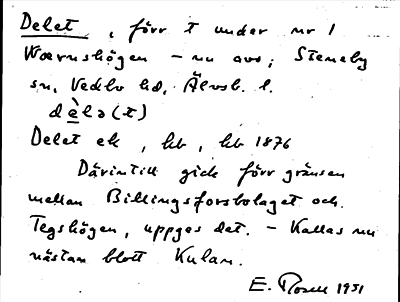 Delet, förr t under nr 1
Wærnshögen – nu avs; Steneby
sn, Vedbo hd, Älvsb. l.
dὲlə(t)
Delet ek, hb, hb 1876
Därintill gick förr gränsen
mellan Billingsforsbolaget och
Tegshögen, uppges det. – Kallas nu
nästan blott Kulan.
E. Rosell 1931